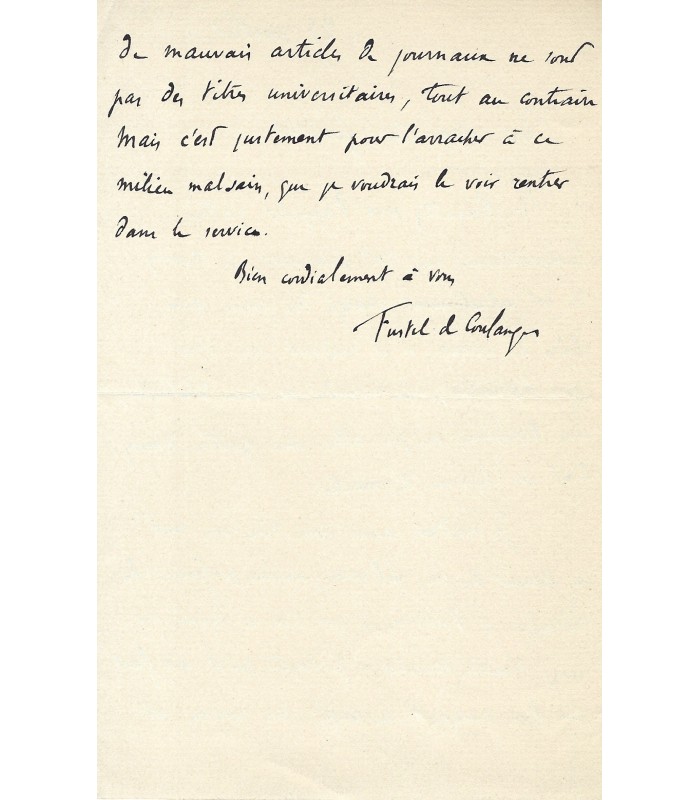 De mauvais articles de journaux ne sont
pas des titres universitaires, tout au contraire
Mais c'est justement pour l'arracher à ce
milieu malsain, que je voudrais le voir rentrer
dans le service.
Bien cordialement à vous
Fustel de Coulanges